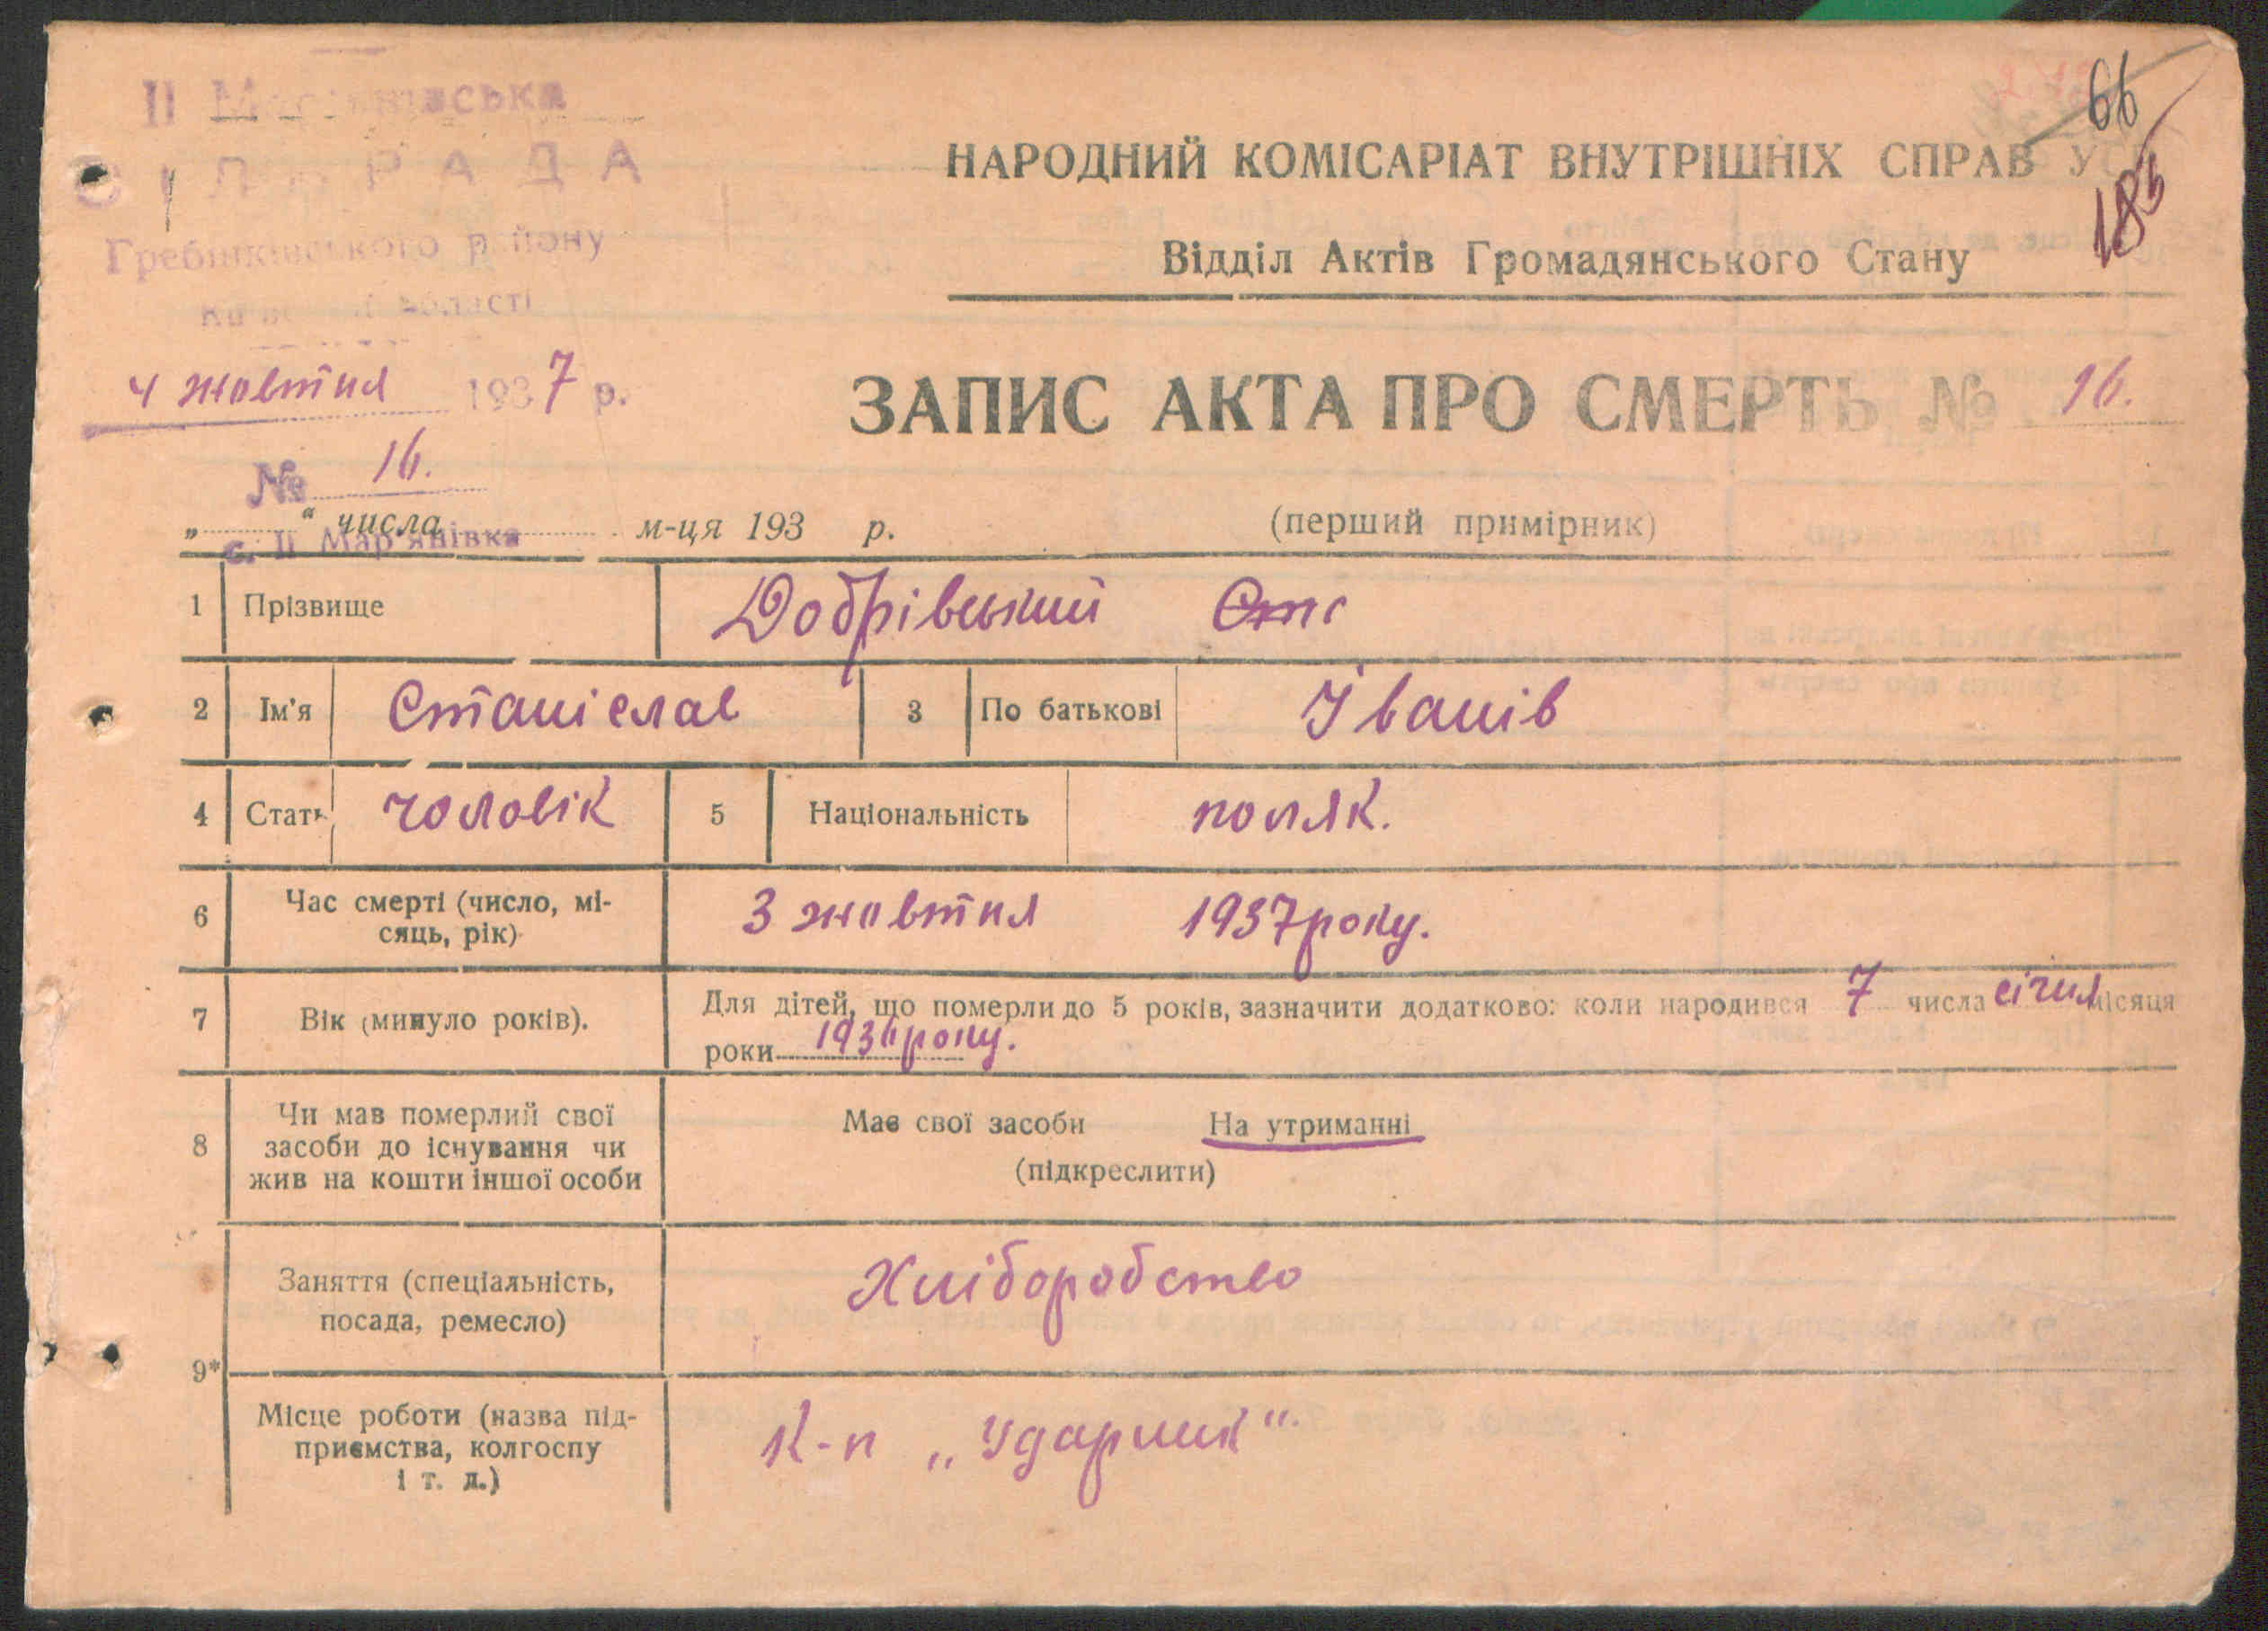 ІІ Мар'янівська
СІЛЬРАДА
Гребінківського району
Київської області
4 жовтня 1937 р.
№ 16.
с. ІІ Мар'янівка
66
185
НАРОДНИЙ КОМІСАРІАТ ВНУТРІШНІХ СПРАВ У
Відділ Актів Громадянського Стану
ЗАПИС АКТА ПРО СМЕРТЬ № 16.
„ “ числа м-ця 193 р. (перший примірник)
1 Прізвище Добрівський Ст
2 Ім'я Станіслав 3 По батькові Іванів
4 Стать чоловік 5 Національність поляк.
6 Час смерті (число, мі-
сяць, рік) 3 жовтня 1937 року.
7 Вік (минуло років). Для дітей, що померли до 5 років, зазначити додатково: коли народився 7 числа січня місяця
роки року.
8 Чи мав померлий свої
засоби до існування чи
жив на кошти іншої особи
Має свої засоби На утриманні
(підкреслити)
9* Заняття (спеціальність,
посада, ремесло) Хліборобство
Місце роботи (назва під-
приємства, колгоспу
і т. д.) К-п „Ударник“.